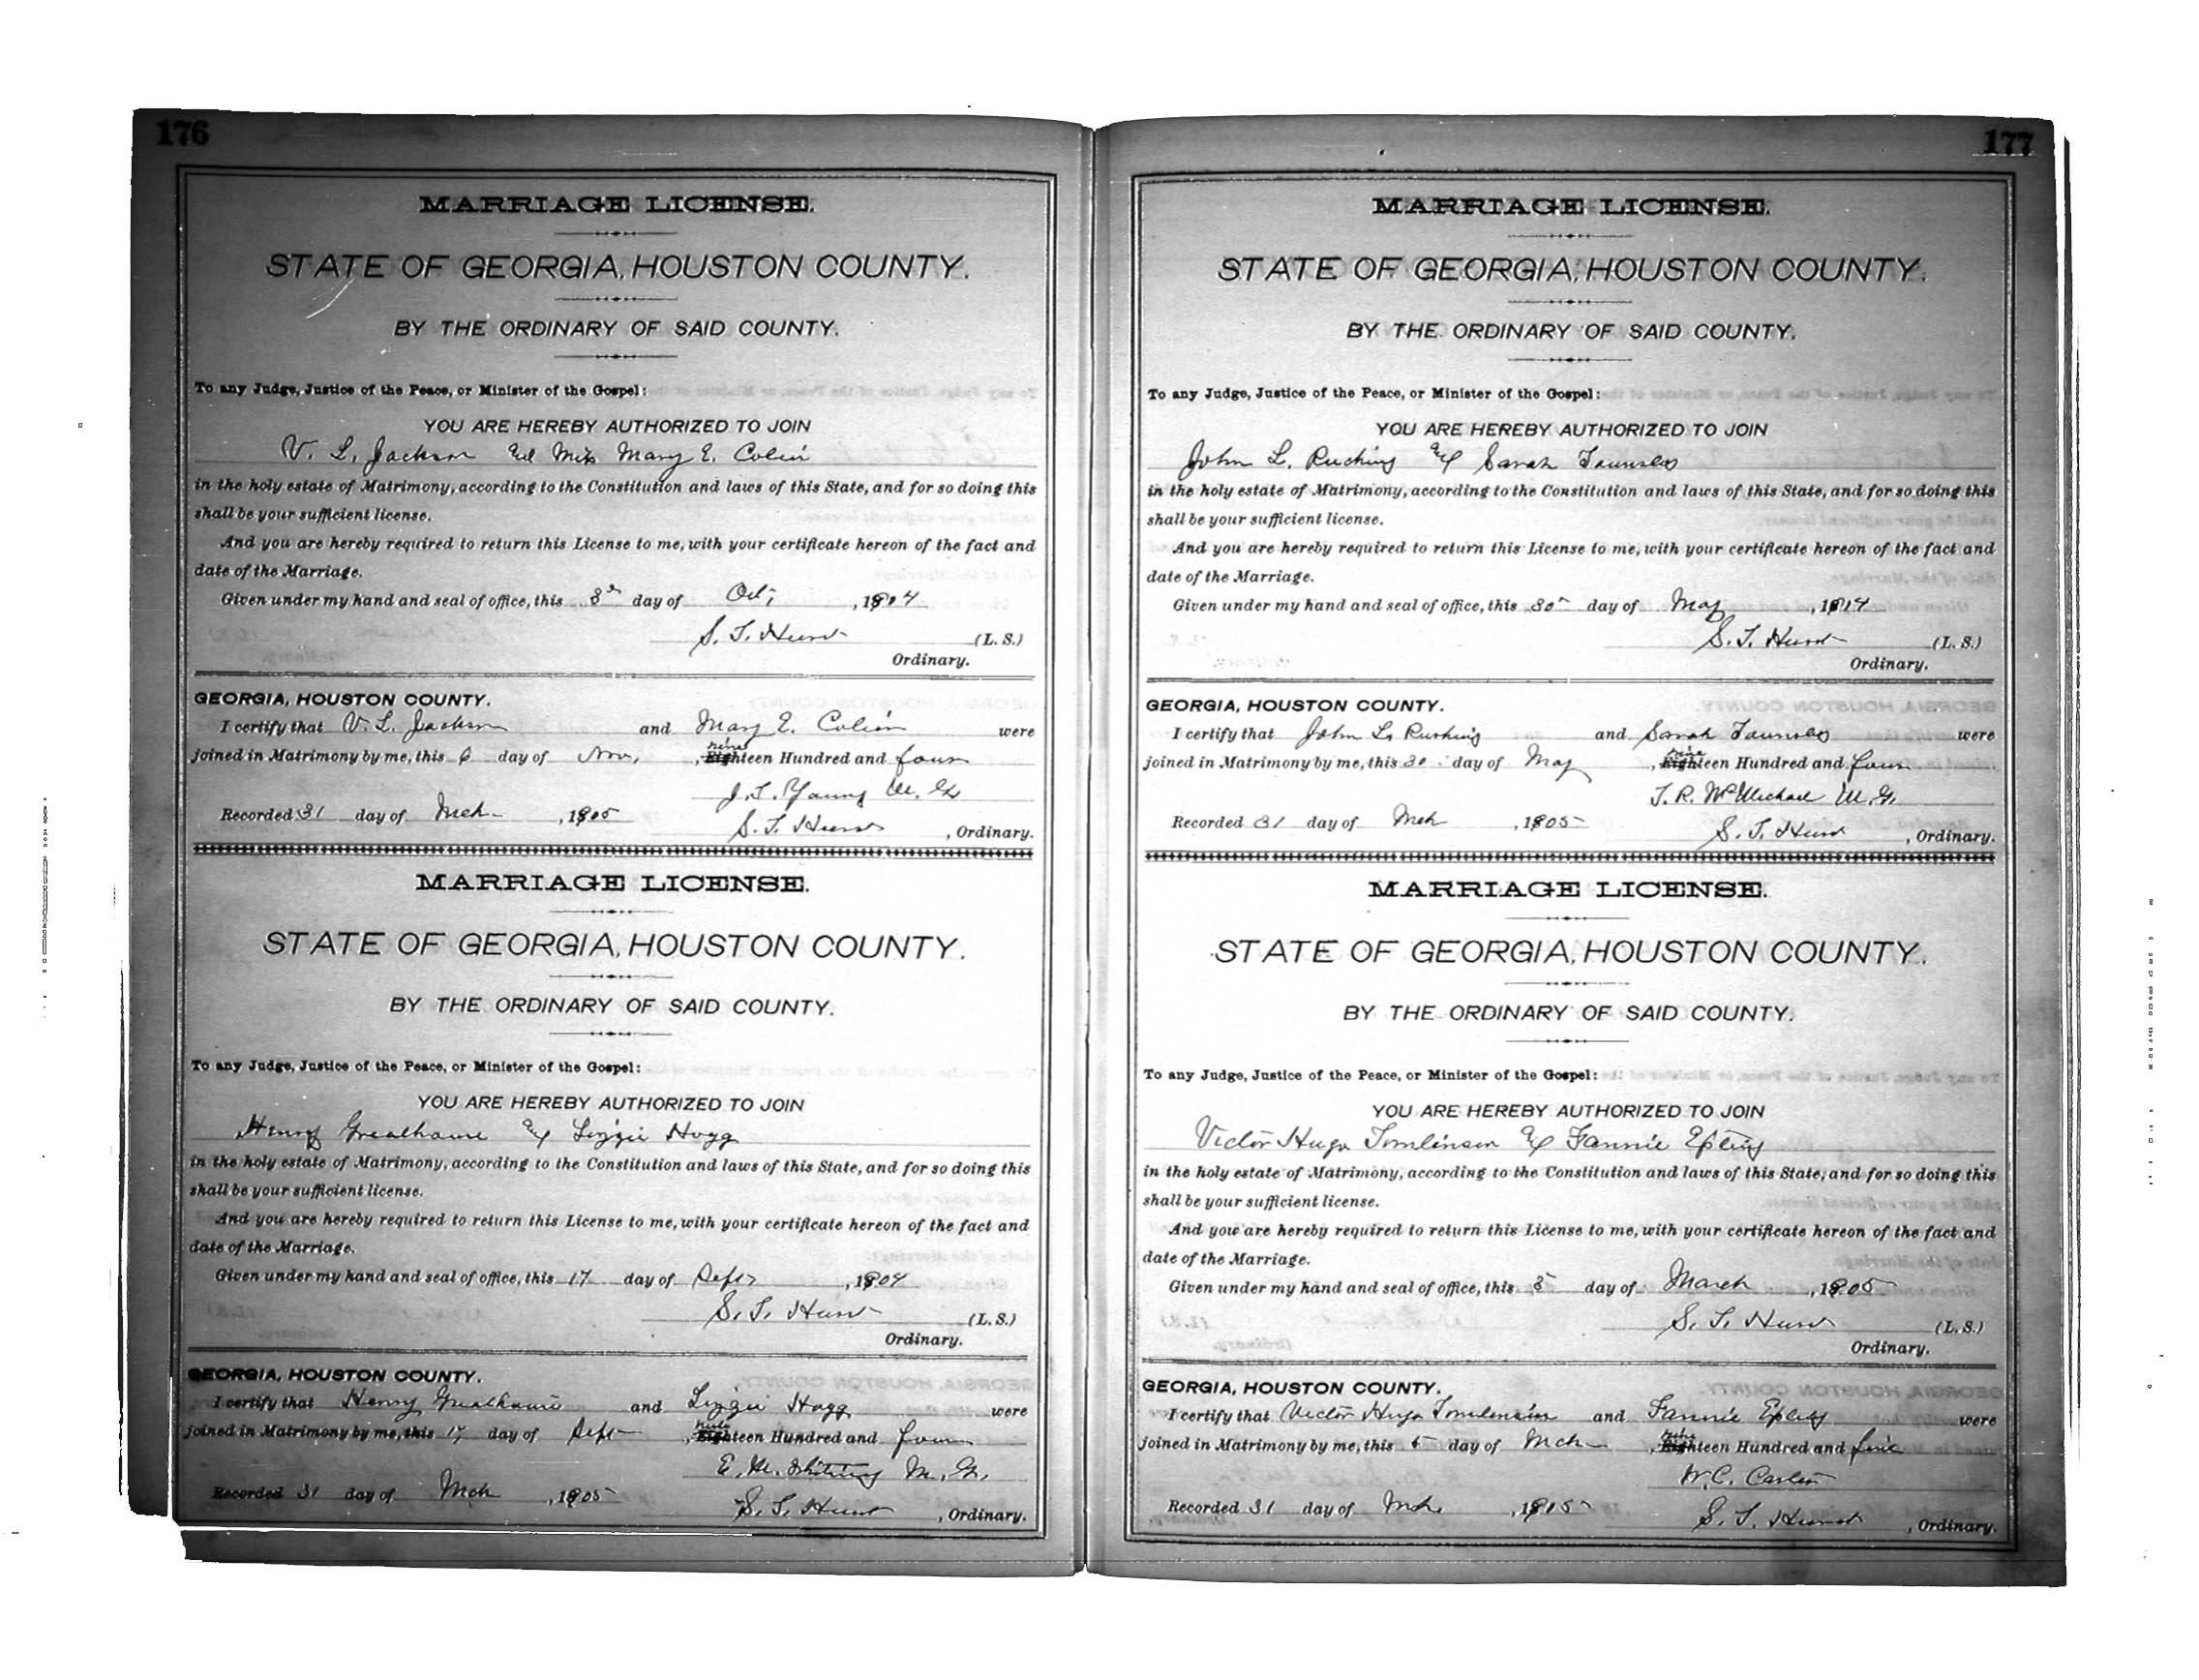 176
MARRIAGE LICENSE.
STATE OF GEORGIA, HOUSTON COUNTY.
BY THE ORDINARY OF SAID COUNTY.
To any Judge, Justice of the Peace, or Minister of the Gospel:
YOU ARE HEREBY AUTHORIZED TO JOIN
V. L. Jackson and Miss Mary E.
in the holy estate of Matrimony, according to the Constitution and laws of this State, and for so doing this
shall be your sufficient license.
And you are hereby required to return this License to me, with your certificate hereon of the fact and
date of the Marriage.
Given under my hand and seal of office, this day of Oct, 1904
S. T. Hurst (L. S.)
Ordinary.
GEORGIA, HOUSTON COUNTY.
I certify that V. L. Jackson and Mary E. were
joined in Matrimony by me, this 6 day of Nov, nineteen Hundred and four
J. T. Young M. G.
Recorded 31 day of Mch, 1905
S. T. Hurst, Ordinary.
MARRIAGE LICENSE.
STATE OF GEORGIA, HOUSTON COUNTY.
BY THE ORDINARY OF SAID COUNTY.
To any Judge, Justice of the Peace, or Minister of the Gospel:
YOU ARE HEREBY AUTHORIZED TO JOIN
Henry & Lizzie Hogg
in the holy estate of Matrimony, according to the Constitution and laws of this State, and for so doing this
shall be your sufficient license.
And you are hereby required to return this License to me, with your certificate hereon of the fact and
date of the Marriage.
Given under my hand and seal of office, this 17 day of Sept, 1904
S. T. Hurst (L. S.)
Ordinary.
GEORGIA, HOUSTON COUNTY.
I certify that Henry and Lizzie Hogg were
joined in Matrimony by me, this 17 day of Sept, nineteen Hundred and four
E. M. M. G.
Recorded 31 day of Mch, 1905
S. T. Hurst, Ordinary.
177
MARRIAGE LICENSE.
STATE OF GEORGIA, HOUSTON COUNTY.
BY THE ORDINARY OF SAID COUNTY.
To any Judge, Justice of the Peace, or Minister of the Gospel:
YOU ARE HEREBY AUTHORIZED TO JOIN
John L. Rushing & Sarah
in the holy estate of Matrimony, according to the Constitution and laws of this State, and for so doing this
shall be your sufficient license.
And you are hereby required to return this License to me, with your certificate hereon of the fact and
date of the Marriage.
Given under my hand and seal of office, this 30 day of May, 1904
S. T. Hurst (L. S.)
Ordinary.
GEORGIA, HOUSTON COUNTY.
I certify that John L. Rushing and Sarah were
joined in Matrimony by me, this 30 day of May, nineteen Hundred and four
T. R. McMichael M. G.
Recorded 31 day of Mch, 1905
S. T. Hurst, Ordinary.
MARRIAGE LICENSE.
STATE OF GEORGIA, HOUSTON COUNTY.
BY THE ORDINARY OF SAID COUNTY.
To any Judge, Justice of the Peace, or Minister of the Gospel:
YOU ARE HEREBY AUTHORIZED TO JOIN
Victor Hugo Tomlinson & Fannie Epting
in the holy estate of Matrimony, according to the Constitution and laws of this State, and for so doing this
shall be your sufficient license.
And you are hereby required to return this License to me, with your certificate hereon of the fact and
date of the Marriage.
Given under my hand and seal of office, this 5 day of March, 1905
S. T. Hurst (L. S.)
Ordinary.
GEORGIA, HOUSTON COUNTY.
I certify that Victor Hugo Tomlinson and Fannie Epting were
joined in Matrimony by me, this 5 day of Mch, nineteen Hundred and five
W. C.
Recorded 31 day of Mch, 1905
S. T. Hurst, Ordinary.